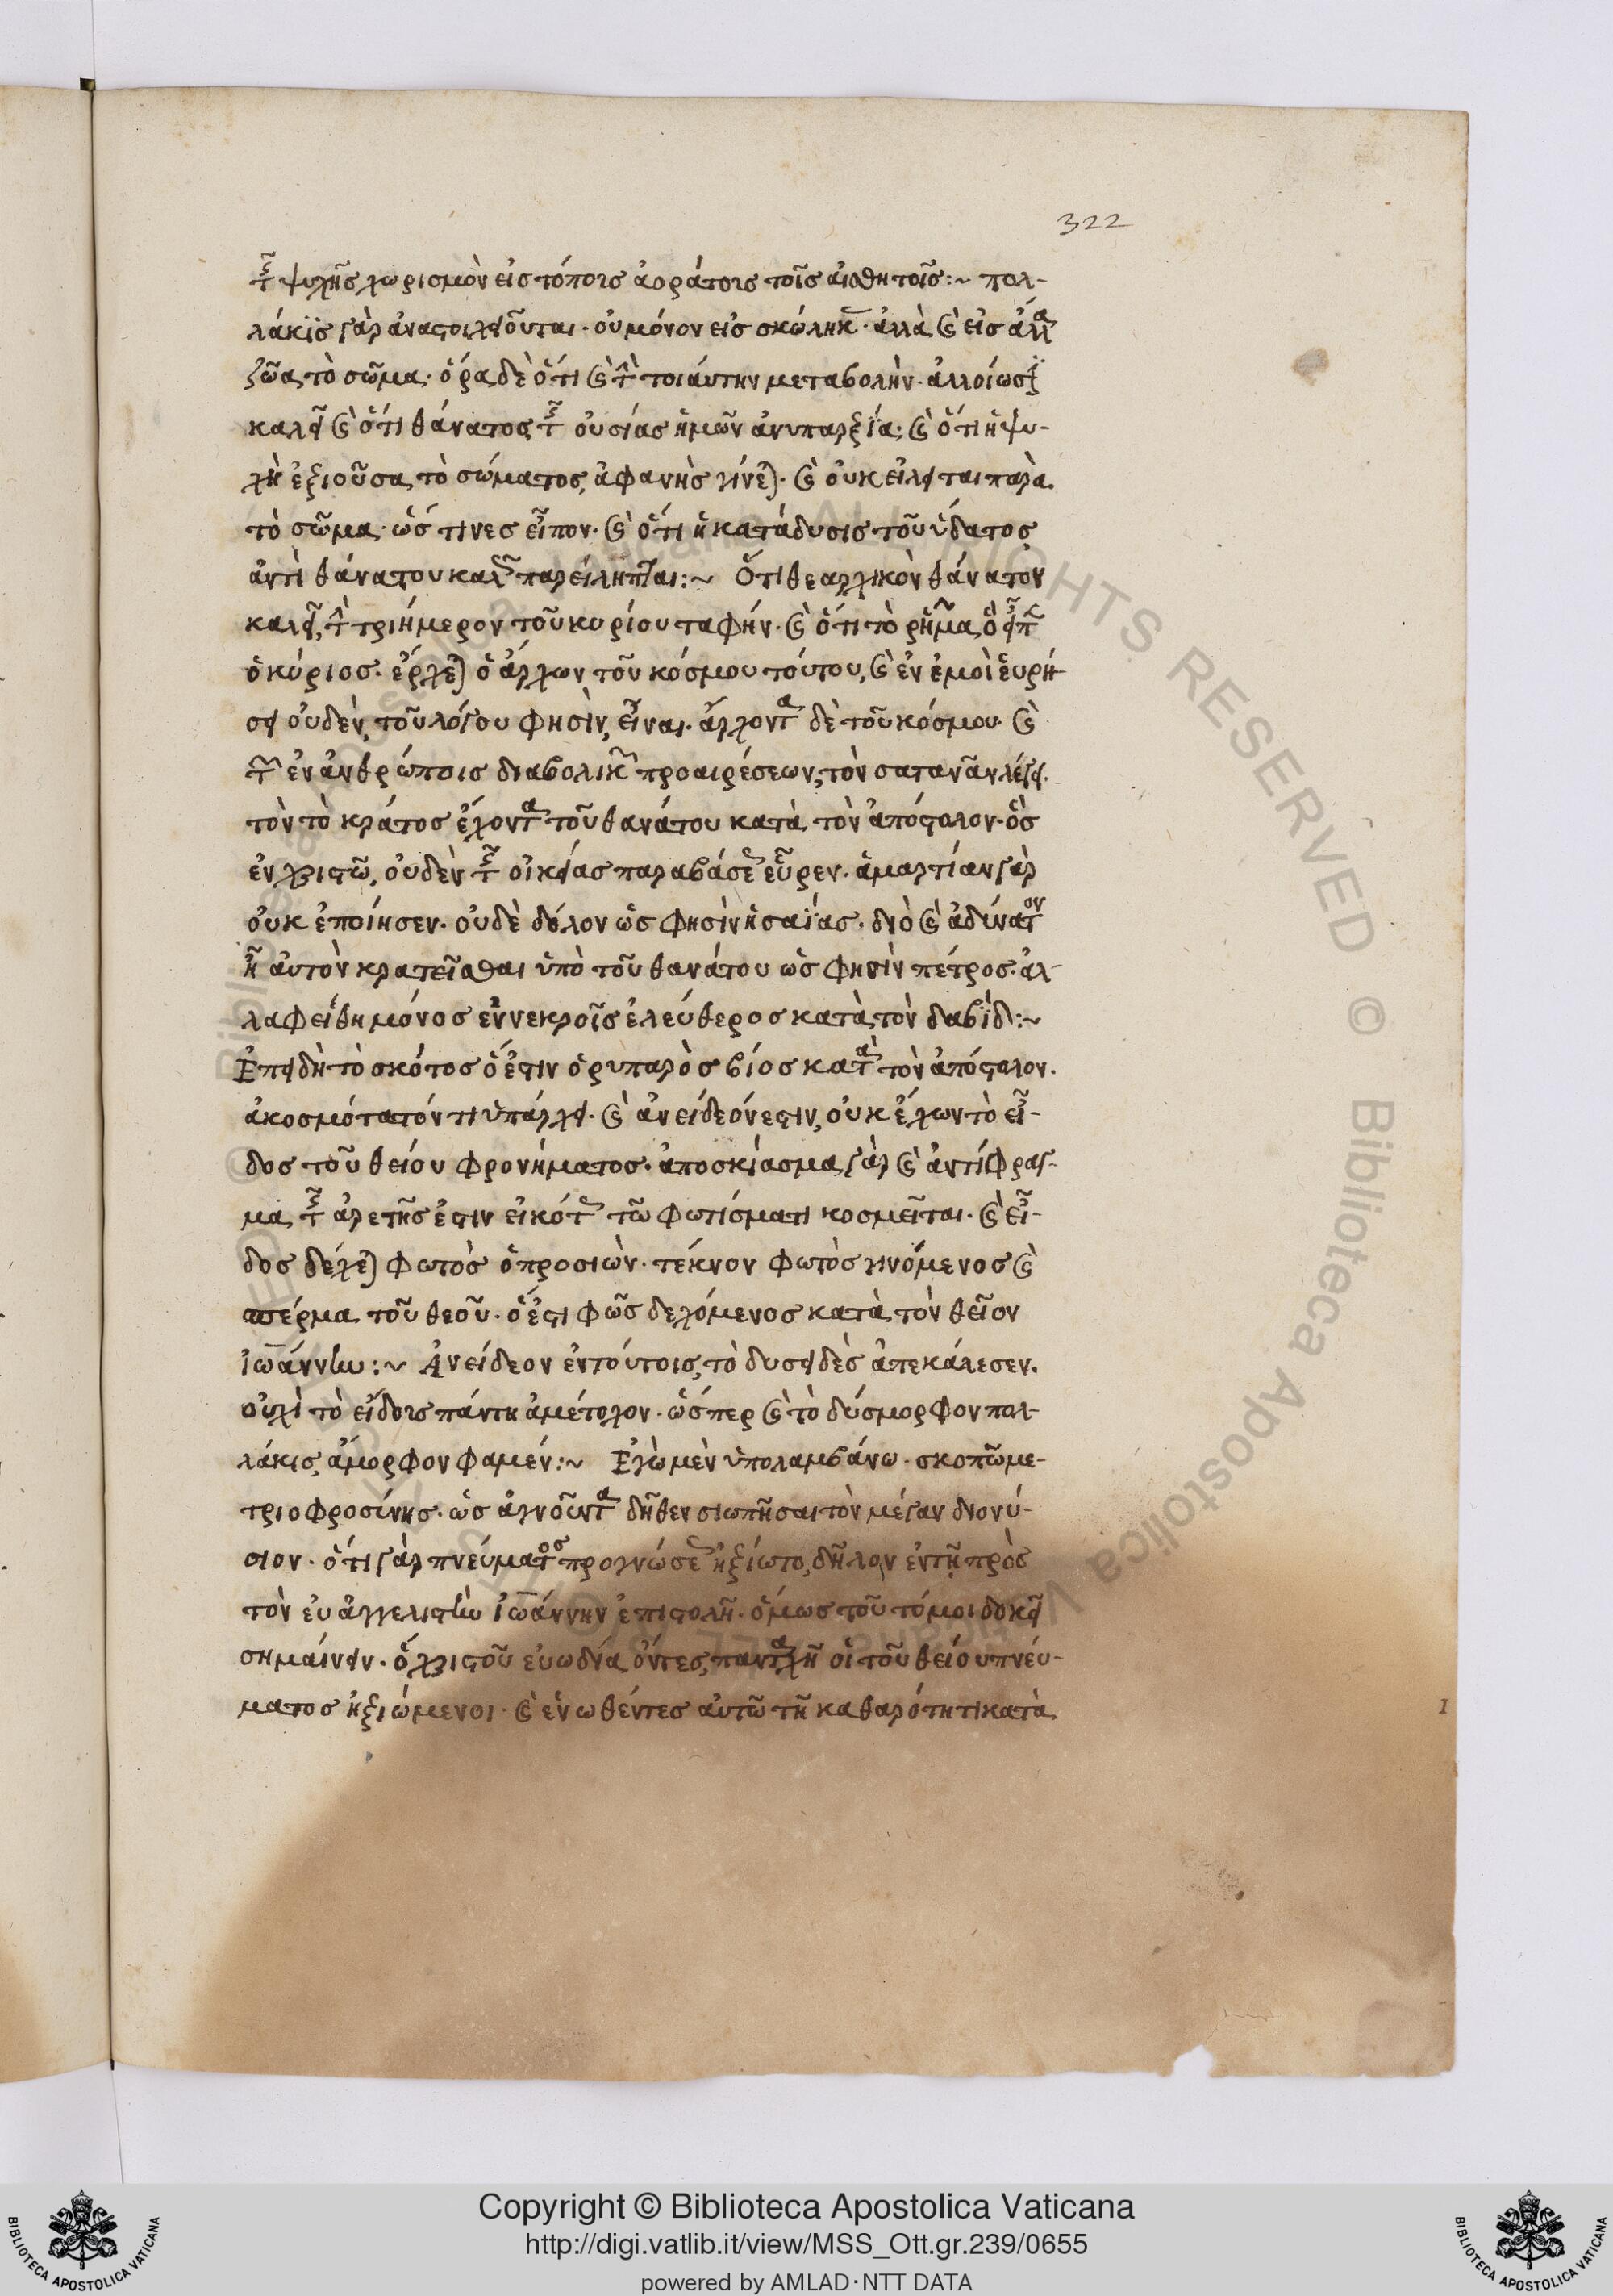 322
τῆς ψυχῆς χωρισμὸν εἰς τόποις ἀοράτοις τοῖς αἰσθητοῖς:~ πολ-
λάκϊς γὰρ ἀναστοιχειοῦται· οὐ μόνον εἰς σκώληκας· ἀλλὰ καὶ εἰς ἄλλα
ζῶα τὸ σῶμα· ὅρα δὲ ὅτι καὶ τὴν τοιάυτην μεταβολὴν· ἀλλοίωσϊν
καλεῖ καὶ ὅτι θάνατος τῆς οὐσίας ἡμῶν ἀνυπαρξΐα· καὶ ὅτι ἡ ψυ-
χὴ ἐξιοῦσα τὸ σώματος, ἀφανὴς γίνεται· καὶ οὐκ εἴλειται παρὰ
τὸ σῶμα· ὥς τινες εἶπον· καὶ ὅτι ἡ κατάδυσις τοῦ ὕδατος
ἀντὶ θανάτου καλῶς παρείληπται:~ Ὅτι θεαρχικὸν θάνατον
καλεῖ, τὴν τριήμερον τοῦ κυρίου ταφήν· καὶ ὅτι τὸ ῥῆμα, ὃ εἶπεν
ὁ κύριος· ἔρχεται ὁ ἄρχων τοῦ κόσμου τούτου, καὶ ἐν ἐμοὶ ἑυρή-
σει οὐδὲν, τοῦ λόγου φησὶν, εἶναι· ἄρχοντα δὲ τοῦ κόσμου· καὶ
τῶν ἐν ἀνθρώποις διαβολικῶν προαιρέσεων, τὸν σατανᾶν λέγει·
τὸν τὸ κράτος ἔχοντα τοῦ θανάτου κατὰ τὸν ἀπόστολον· ὃς
ἐν χριστῶ, οὐδὲν τῆς οἰκείας παραβάσεως εὗρεν· ἁμαρτίαν γὰρ
οὐκ ἐποίησεν· οὐδὲ δόλον ὥς φησὶν ἡσαΐας· διὸ καὶ ἀδύνατον
ἦν αὐτὸν κρατεῖσθαι ὑπὸ τοῦ θανάτου ὥς φησὶν πέτρος· ἀλ-
λαφείθη μόνος ἐν νεκροῖς ἐλεύθερος κατὰ τὸν δαβῒδ:~
Ἐπειδὴ τὸ σκότος ὅ ἐστιν ὁ ρυπαρὸς βίος κατὰ τὸν ἀπόστολον·
ἀκοσμότατόν τι ὑπάρχει· καὶ ἀνείδεόν ἐστιν, οὐκ ἔχων τὸ εἶ-
δος τοῦ θείου φρονήματος· ἀποσκίασμα γὰρ καὶ ἀντίφραγ-
μα τῆς ἀρετῆς ἐστιν εἰκότως τῶ φωτίσματι κοσμεῖται· καὶ εἶ-
δος δέχεται φωτὸς ὁ προσιὼν· τέκνον φωτὸς γινόμενος καὶ
σπέρμα τοῦ θεοῦ· ὅ ἐστι φῶς δεχόμενος κατὰ τὸν θεῖον
ἰωάννην:~ Ἀνείδεον ἐν τούτοις, τὸ δυσειδὲς ἀπεκάλεσεν.
οὐχὶ τὸ εἴδοις πάντη ἀμέτοχον· ὥσπερ καὶ τὸ δύσμορφον πολ-
λάκις, ἄμορφον φαμέν:~ Ἐγὼ μὲν ὑπολαμβάνω· σκοπῶ με-
τριοφροσύνης· ὡς ἀγνοῦντα δῆθεν σιωπῆσαι τὸν μέγαν διονύ-
σιον· ὅτι γὰρ πνεύματος προγνώσεως ἠξίωτο, δῆλον ἐν τῇ πρὸς
τὸν εὐαγγελιστὴν ἰωάννην ἐπιστολῆ· ὅμως τοῦτό μοι δοκεῖ
σημαίνειν· ὅ χριστοῦ ευωδία ὄντες, πανταχῆ οἱ τοῦ θείου πνεύ-
ματος ἠξιώμενοι· καὶ ἑνωθέντες αὐτῶ τῆ καθαρότητι κατὰ
Copyright © Biblioteca Apostolica Vaticana
http://digi.vatlib.it/view/MSS_Ott.gr.239/0655
powered by AMLAD·NTT DATA